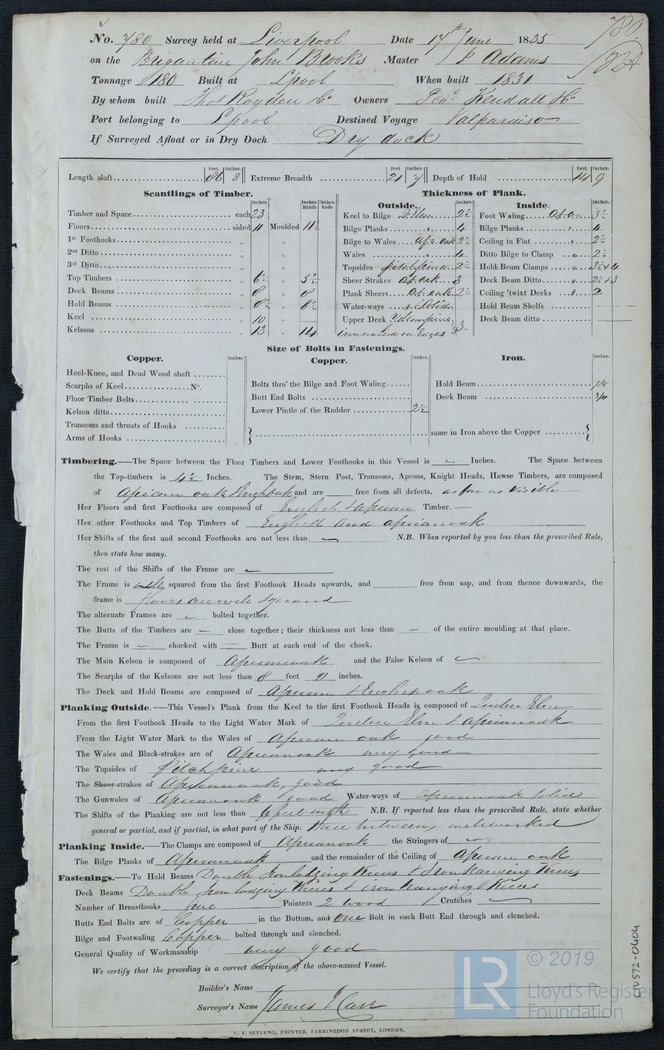 780
No. 780 Survey held at Liverpool Date 17th June 1835
on the Brigantine John Brooks Master J Adams
Tonnage 180 Built at Lpool When built 1831
By whom built Thos Royden & Co Owners Geo. Kendall & Co
Port belonging to Lpool Destined Voyage Valparaiso
If Surveyed Afloat or in Dry Dock Dry dock
Feet. Inches. Feet Inches. Feet. Inches.
Length aloft 86 8 Extreme Breadth 21 7 Depth of Hold 14 9
Scantlings of Timber. Thickness of Plank.
Outside. Inside.
Timber and Space each 23 Keel to Bilge 2½ Foot Waling
Floors sided 11 Moulded 11½ Bilge Planks 4 Bilge Planks 4
1st Foothooks Bilge to Wales Afr. oak 2½ Ceiling in Flat 2½
2nd Ditto Wales 4 Ditto Bilge to Clamp 2½
3rd Ditto Topsides pitch pine 2½ Hold Beam Clamps
Top Timbers Sheer Strakes af. oak 3 Deck Beam Ditto
Deck Beams 8 Plank Sheers af. oak 2½ Ceiling 'twixt Decks 2
Hold Beams Water-ways solid Hold Beam Shelfs
Keel 10 Upper Deck Deck Beam ditto
Kelsons 13 14
Size of Bolts in Fastenings.
Copper. Copper. Iron.
Heel-Knee, and Dead Wood abaft
Scarphs of Keel No. Bolts thro' the Bilge and Foot Waling Hold Beam
Floor Timber Bolts Butt End Bolts Deck Beam
Kelson ditto Lower Pintle of the Rudder 2½
Transoms and throats of Hooks
Arms of Hooks same in Iron above the Copper
Timbering.—The Space between the Floor Timbers and Lower Foothooks in this Vessel is Inches. The Space between
the Top-timbers is 4½ Inches. The Stem, Stern Post, Transoms, Aprons, Knight Heads, Hawse Timbers, are composed
of African oak & Engh oak and are free from all defects. as far as visible
Her Floors and first Foothooks are composed of English & African Timber.
Her other Foothooks and Top Timbers of English and African oak
Her Shifts of the first and second Foothooks are not less than N.B. When reported by you less than the prescribed Rule,
then state how many.
The rest of the Shifts of the Frame are
The Frame is well squared from the first Foothook Heads upwards, and free from sap, and from thence downwards, the
frame is floors are well squared
The alternate Frames are bolted together.
The Butts of the Timbers are close together; their thickness not less than of the entire moulding at that place.
The Frame is chocked with Butt at each end of the chock.
The Main Kelson is composed of African oak and the False Kelson of
The Scarphs of the Kelsons are not less than 8 feet inches.
The Deck and Hold Beams are composed of African & English oak
Planking Outside.—This Vessel's Plank from the Keel to the first Foothook Heads is composed of Quebec Elm
From the first Foothook Heads to the Light Water Mark of Quebec Elm & African oak
From the Light Water Mark to the Wales of African oak good
The Wales and Black-strakes are of African oak very good
The Topsides of Pitch pine very good
The Sheer-strakes of African oak, good
The Gunwales of African oak good Water-ways of African oak solid
The Shifts of the Planking are not less than 6 feet with N.B. If reported less than the prescribed Rule, state whether
general or partial, and if partial, in what part of the Ship. three between, well worked
Planking Inside.—The Clamps are composed of African oak the Stringers of
The Bilge Planks of African oak and the remainder of the Ceiling of African oak
Fastenings.—To Hold Beams Double Iron lodging Knees & Iron Hanging Knees
Deck Beams Double Iron lodging Knees & iron hanging Knees
Number of Breasthooks five Pointers 2 wood Crutches
Butts End Bolts are of Copper in the Bottom, and one Bolt in each Butt End through and clenched.
Bilge and Footwaling Copper bolted through and clenched.
General Quality of Workmanship very good
We certify that the preceding is a correct description of the above-named Vessel.
Builder's Name
Surveyor's Name James Carr
C. F. SEYFANG, PRINTER, FARRINGDON STREET, LONDON.
LIV572-0404
LR
© 2019
Lloyd's Register
Foundation